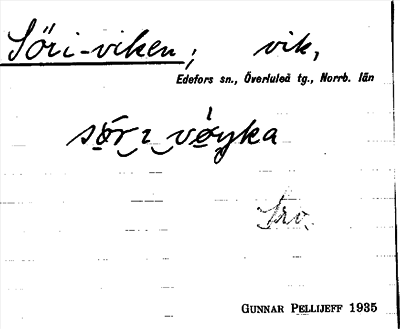 Söri-viken; vik,
Edefors sn., Överluleå tg., Norrb. län
sör ı vɷyka
Trv.
GUNNAR PELLIJEFF 1935